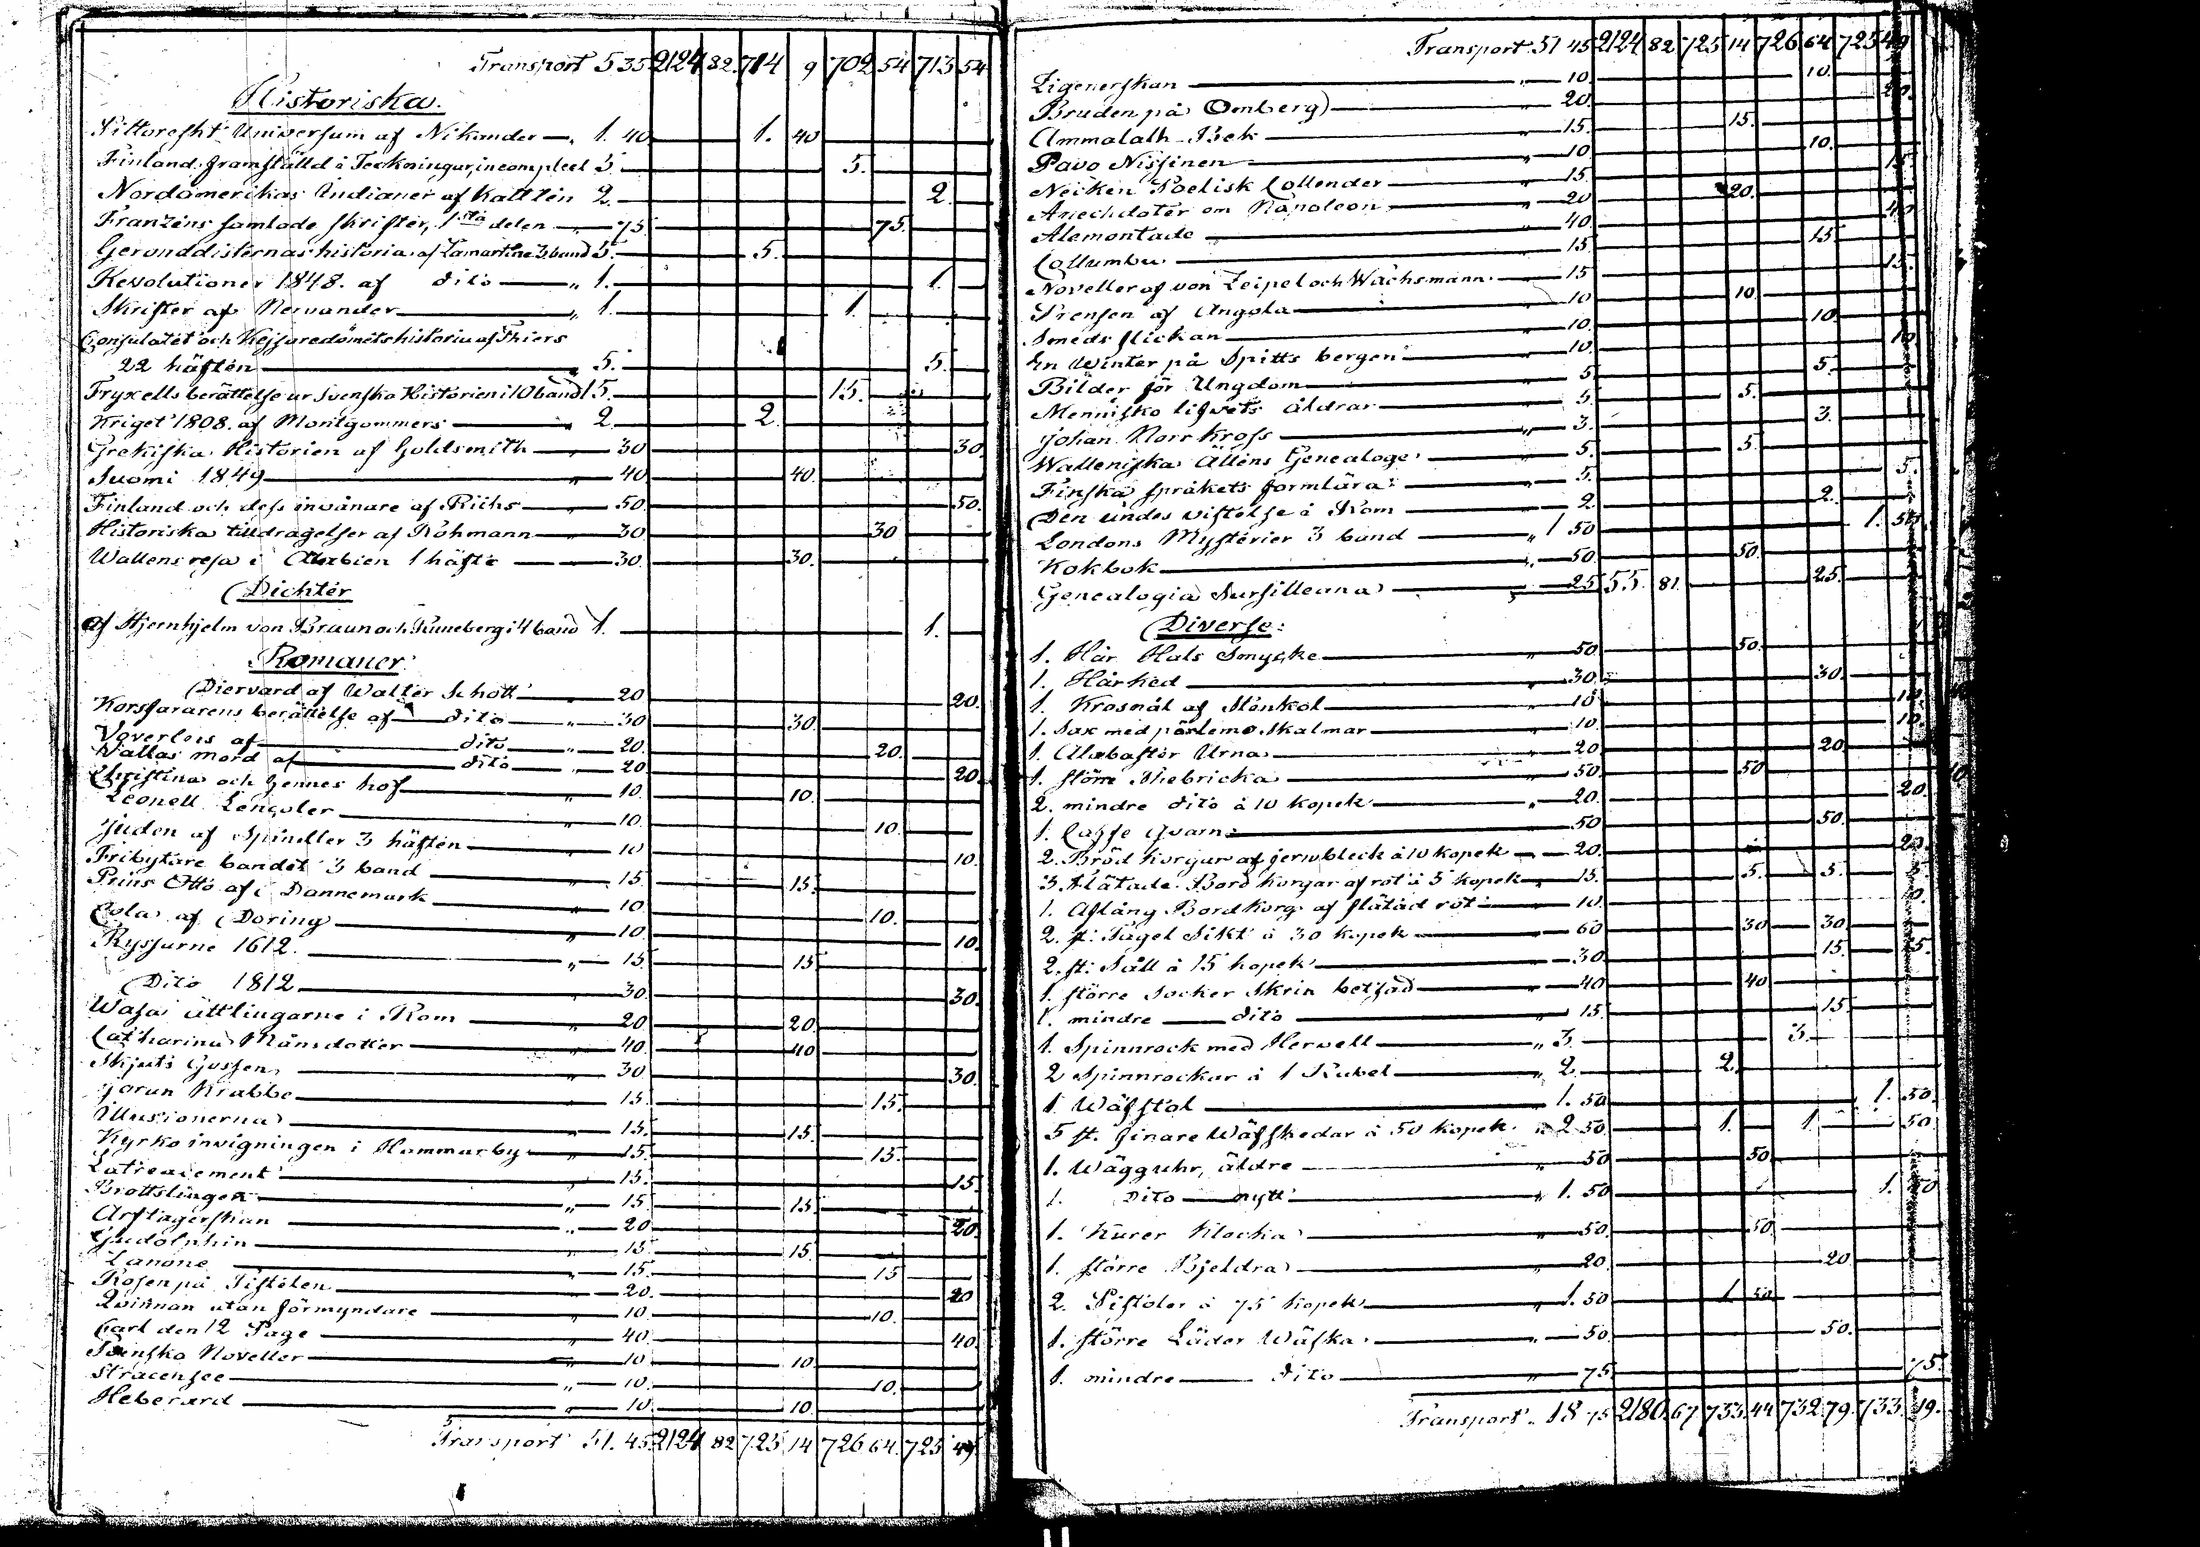 Transport 5 35 2124 82 714 9 702 54 713 54
Historiska.
Pittoreskt Universum af Nikander „ 1. 40 1. 40
Finland framställd i Teckningar, incomplect 5. 5.
Nordamerikas Indianer af Kattlin 2. 2.
Franzéns samlade skrifter, 1sta delen „ 75. 75.
Gerondisternas historia af Lamartine 3 band 5. 5.
Revolutioner 1848. af dito „ 1. 1.
Skrifter af Nervander „ 1. 1.
Consulatet och Kejsaredömets historia af Thiers
22 häften „ 5. 5.
Fryxells berättelse ur Svenska Historien i 10 band 15. 15.
Kriget 1808. af Montgommeri „ 2. 2.
Grekiska Historien af Goldsmith „ 30 30.
Suomi 1849 „ 40 40.
Finland och dess invånare af Rühs „ 50. 50.
Historiska tilldragelser af Rohmann „ 30 30
Wallens resa i Arabien 1 häfte „ 30. 30.
Dichter
af Stjernhjelm von Braun och Runeberg i 4 band 1. 1.
Romaner
Diervard af Walter Schott „ 20 20.
Korsfararens berättelse af dito „ 30 30.
Voverleis af dito „ 20. 20.
Wallas mord af dito „ 20 20.
Christina och hennes hof „ 10. 10.
Leonell Lencoler „ 10. 10.
Juden af Spindler 3 häften „ 10 10.
Fribytare bandet 3 band „ 15. 15.
Prins Otto af Dannemark „ 10. 10.
Cola af Doring „ 10. 10.
Ryssarne 1612. „ 15. 15
Dito 1812 „ 30. 30.
Wasa ättlingarne i Rom „ 20 20.
Catharina Månsdotter „ 40. 40
Skjuts Gossen „ 30 30.
Jorun Krabbe „ 15. 15.
Illusionerna „ 15. 15.
Kyrko invigningen i Hammarby „ 15. 15.
„ 15. 15.
Brottslingen „ 15 15.
Arftagerskan „ 20 20.
Gudolphin „ 15. 15.
Lanone „ 15. 15
Rosen på Tistelen „ 20. 20
Qvinnan utan förmyndare „ 10. 10.
Carl den 12 Page „ 40. 40
Svenska Noveller „ 10. 10.
„ 10. 10.
Heberard „ 10. 10.
Transport 51. 45 2124 82 725 14 726 64. 725 49
Transport 51 45 2124 82 725 14 726 64 725 49
Zigenerskan „ 10. 10.
Bruden på Omberg „ 20. 20.
Ammalath Bek „ 15. 15.
Pavo Nissinen „ 10. 10.
Neiken Poetisk Collender „ 15. 15
Anechdoter om Napoleon „ 20 20.
Alamontade „ 40 40
Collumba „ 15. 15
Noveller af von Zeipel och Wachsmann „ 15 15.
Prensen af Angola „ 10 10
Smeds flickan „ 10. 10.
En Winter på Spitts bergen „ 10. 10
Bilder för Ungdom „ 5. 5.
Mennisko lifvets åldrar „ 5. 5.
Johan Norrkross „ 3. 3.
Walleniska Ättens Genealoge „ 5. 5.
Finska språkets formlära „ 5. 5.
Den undes vistelse i Rom „ 2. 2.
Londons Mysterier 3 band „ 1 50 1. 50
Kokbok „ 50. 50.
Genealogia Sursilleana „ 25 55. 81. 25.
Diverse:
1. Hår Hals Smycke „ 50 50.
1. Hårked „ 30. 30.
1. Krosnål af Stenkol „ 10 10.
1. Sax med pärlemo. Skalmar „ 10. 10.
1. Alabaster Urna „ 20 20
1. större Thebricka „ 50. 50
2. mindre dito à 10 kopek „ 20. 20.
1. Caffe Qvarn „ 50 50.
2. Bröd korgar af jernbleck à 10 kopek „ 20. 20.
3. Flätade Bord korgar af rot à 5 kopek „ 15. 5. 5. 5
1. Aflång Bord korg af flätad rot „ 10. 10.
2. st: Tagel Sikt à 30 kopek „ 60 30 30.
2. st: Såll à 15 kopek „ 30 15. 15.
1. större Socker Skrin betsad „ 40 40
1. mindre dito „ 15. 15.
1. Spinnrock med Hervell „ 3. 3.
2 Spinnrockar à 1 Rubel „ 2. 2.
1. Wäfstol „ 1. 50 1. 50.
5 st. finare Wäfskedar à 50 kopek „ 2 50. 1. 1 50
1. Wägguhr, äldre „ 50 50.
1. Dito nytt „ 1. 50 1. 50
1. Kurer Klocka „ 50. 50.
1. större Bjeldra „ 20. 20.
2. Pistoler à 75 kopek „ 1. 50 1. 50.
1. större Läder Wäska „ 50. 50.
1. mindre dito „ 75. 75.
Transport 18 75 2180. 67 733. 44 732. 79. 733. 19.